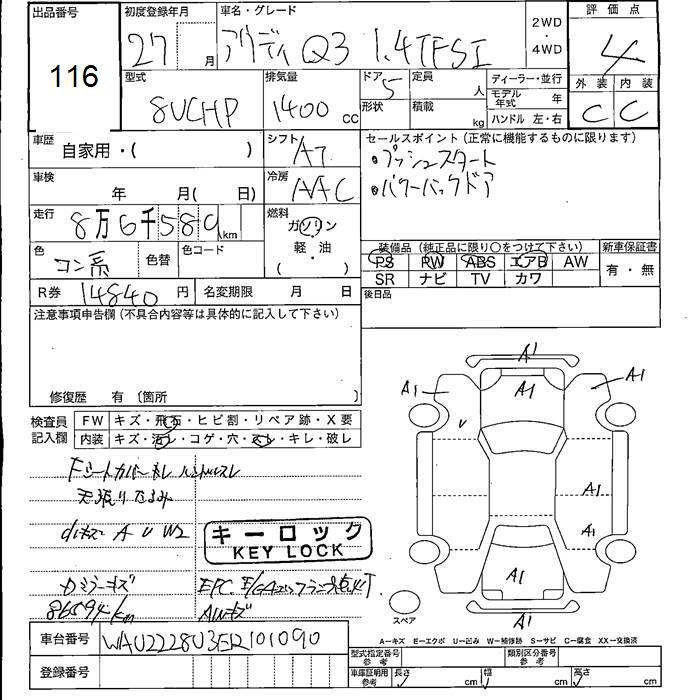 出品番号
116
初度登録年月
27 月
車名・グレード
アウディ Q3 1.4TFSI
2WD
・
4WD
評価点
4
型式
8UCHP
排気量
1400 cc
ドア 5
形状
定員 人
積載 kg
ディーラー・並行
モデル年式 年
ハンドル 左・右
外装 内装
C C
車歴
自家用・( )
シフト
AT
セールスポイント (正常に機能するものに限ります)
・プッシュスタート
・パワーバックドア
車検
年 月( 日)
冷房
AAC
走行
8万6千580km
燃料
ガソリン
軽・油
( )
色
コン系
色替
色コード
装備品 (純正品に限り〇をつけて下さい)
PS PW ABS エアB AW
SR ナビ TV カワ
新車保証書
有・無
R券 14840 円
名変期限 月 日
後日品
注意事項申告欄 (不具合内容等は具体的に記入して下さい)
修復歴 有 〔箇所 〕
検査員
記入欄
FW キズ・飛石・ヒビ割・リペア跡・X要
内装 キズ・汚レ・コゲ・穴・スレ・キレ・破レ
天張りたるみ
A U W2
キーロック
KEY LOCK
86594km
A1
A1
A1
A1
U
A1
A1
A1
A1
スペア
A-キズ E-エクボ U-凹み W-補修跡 S-サビ C-腐食 XX-交換済
車台番号
登録番号
型式指定番号
参考
類別区分番号
参考
車庫証明用
参考
長さ cm
幅 cm
高さ cm